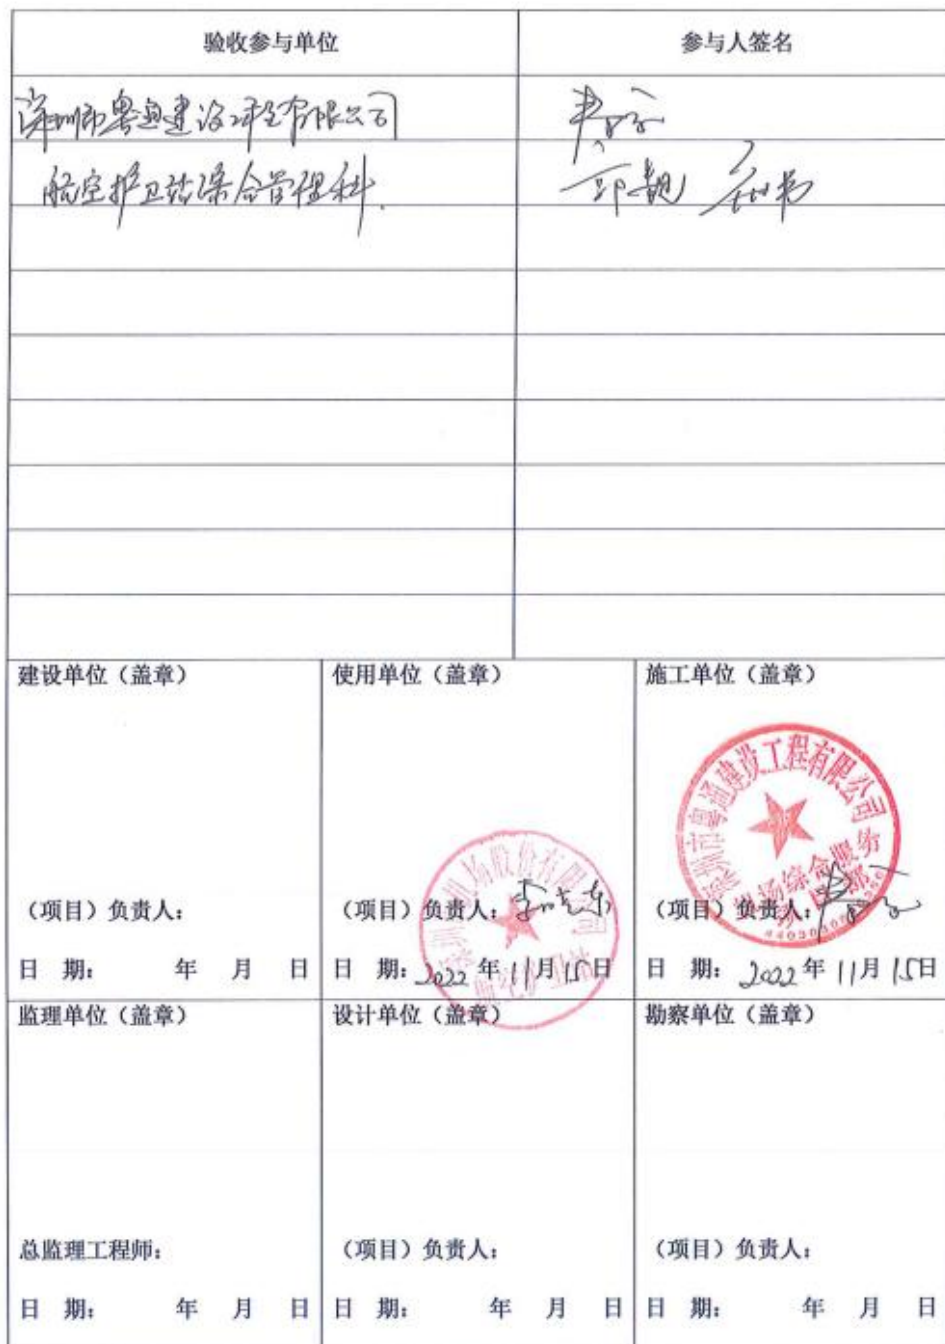 验收参与单位 参与人签名
深圳市粤通建设工程有限公司
航空护卫站综合管理科.
郭靓
建设单位（盖章） 使用单位（盖章） 施工单位（盖章）
深圳市粤通建设工程有限公司
机场综合服务
深圳 机场股份有限公司
（项目）负责人： （项目）负责人： （项目）负责人：
日 期： 年 月 日 日 期：2022 年 11月 15日 日 期：2022 年 11月 15日
监理单位（盖章） 设计单位（盖章） 勘察单位（盖章）
总监理工程师： （项目）负责人： （项目）负责人：
日 期： 年 月 日 日 期： 年 月 日 日 期： 年 月 日